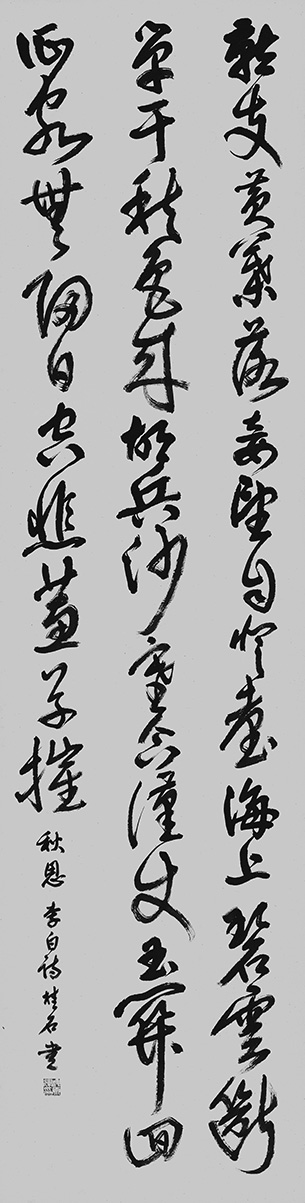 燕支黄葉落妾望自登臺海上碧雲斷
單于秋色來胡兵沙塞合漢使玉關回
征客無歸日空悲蕙草摧
秋思 李白詩 桂石書